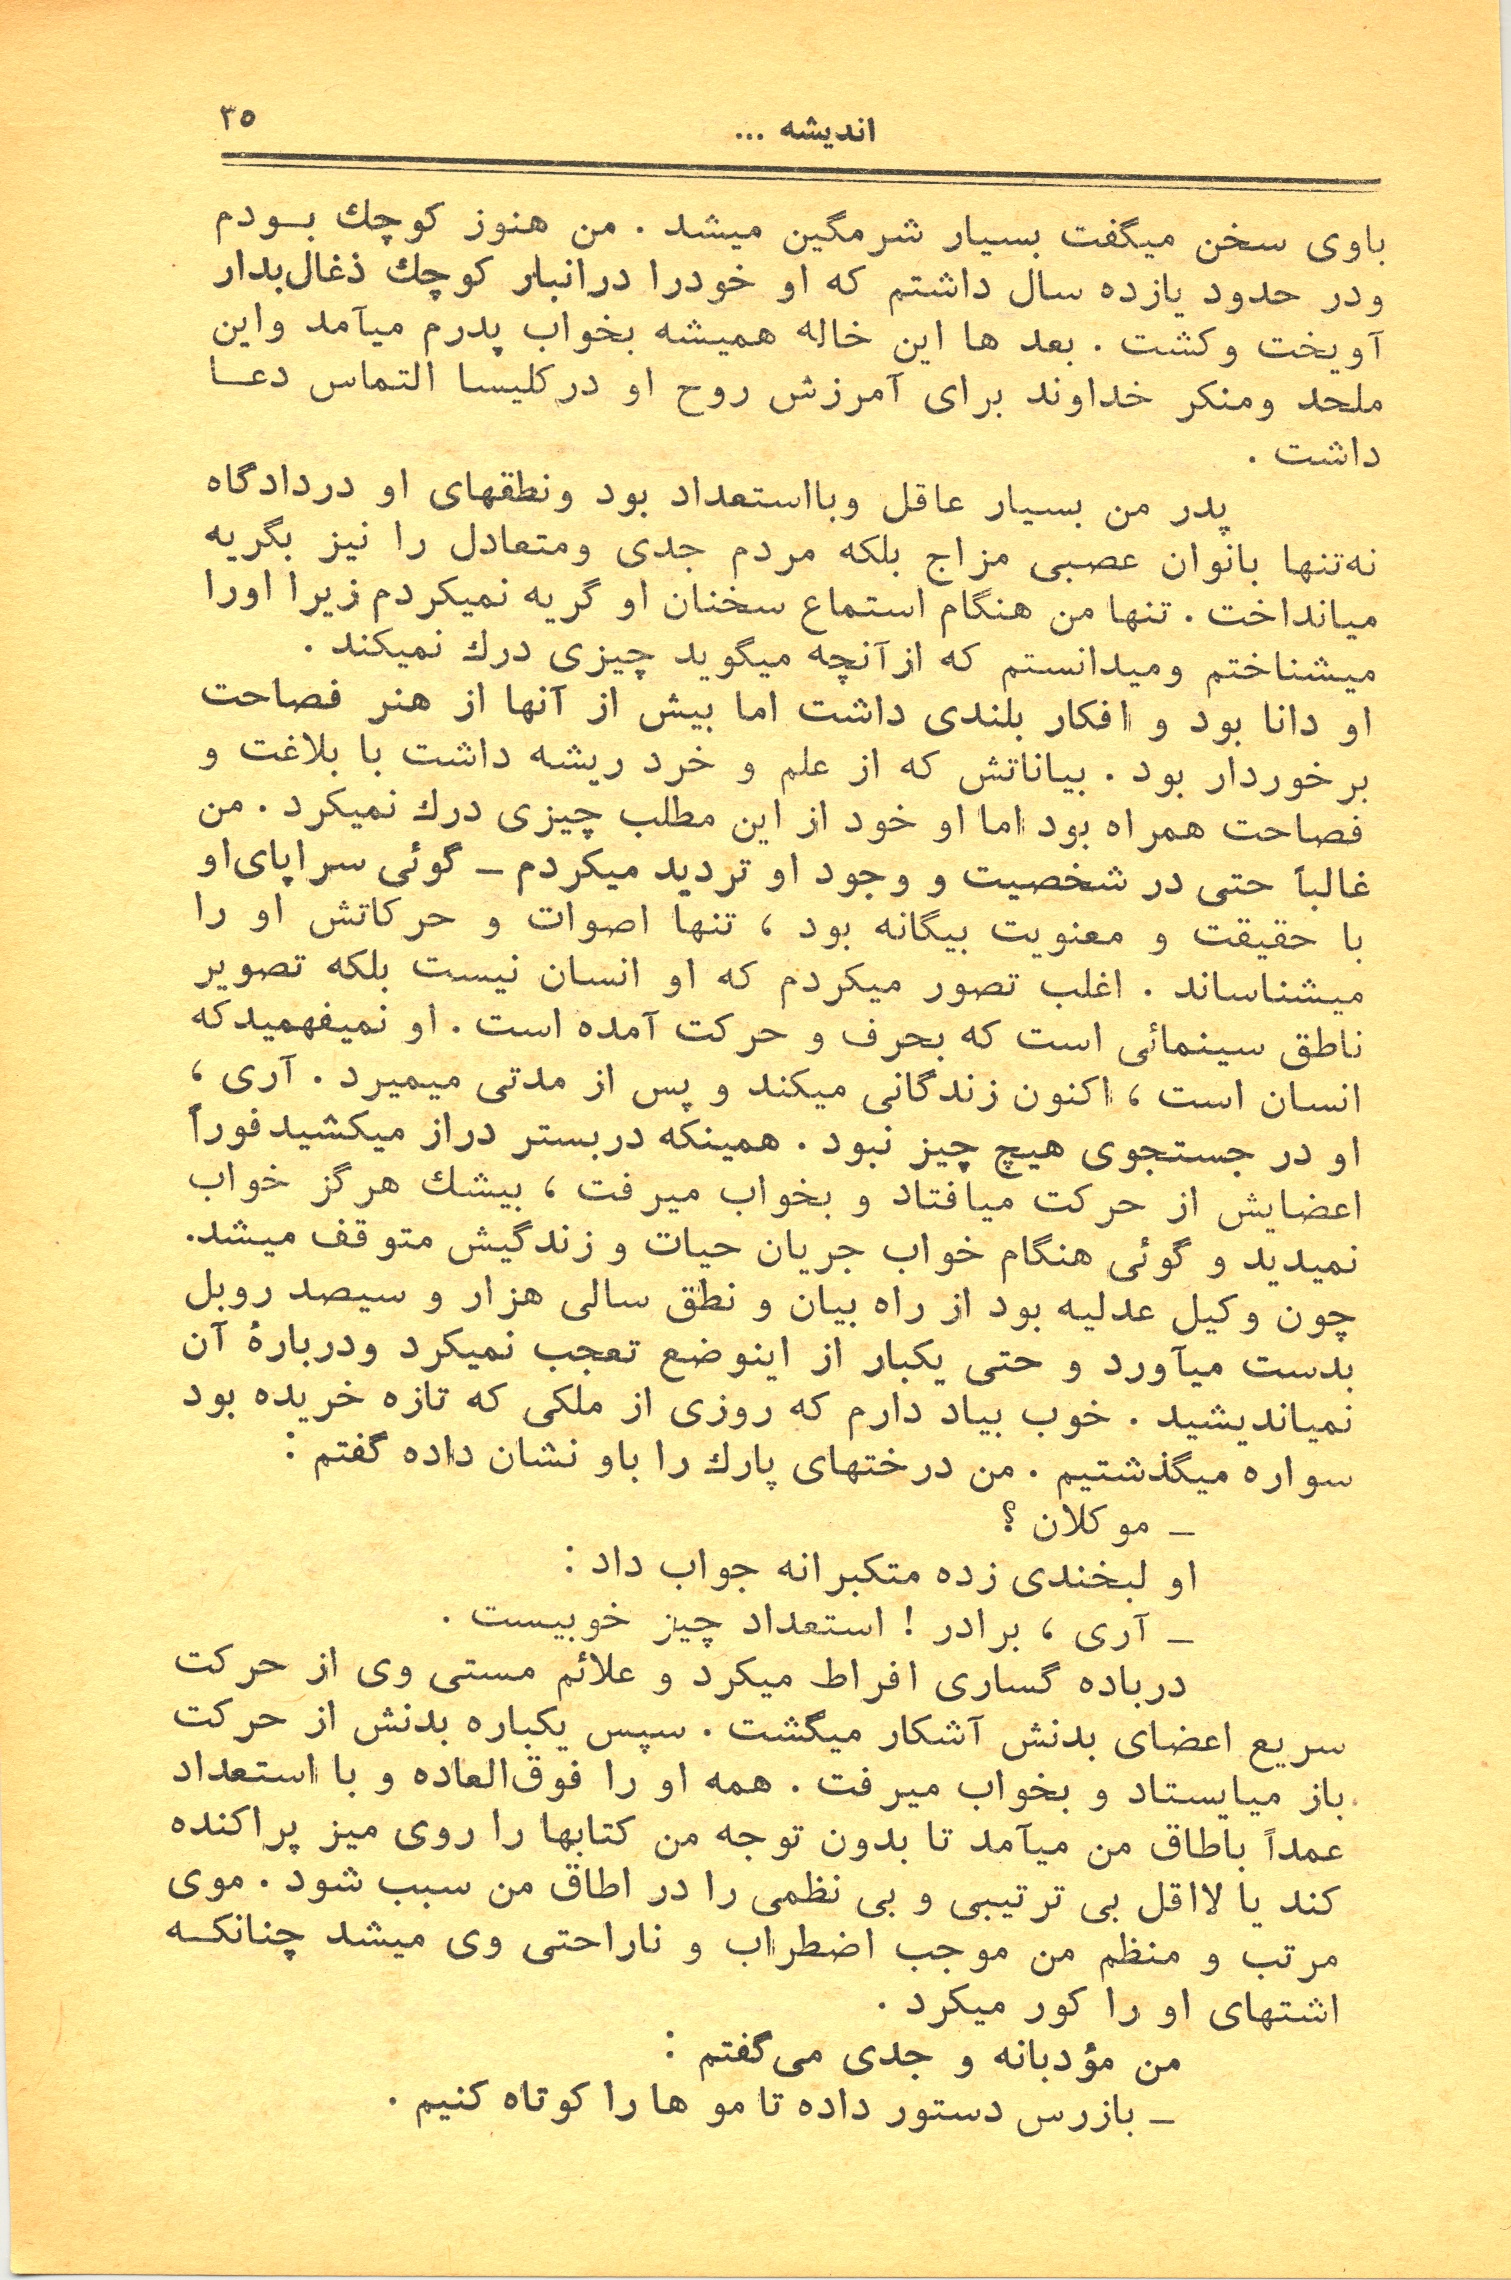 اندیشه ...
۳۵
باوی سخن میگفت بسیار شرمگین میشد . من هنوز کوچك بــودم
ودر حدود یازده سال داشتم که او خودرا درانبار کوچك ذغال‌بدار
آویخت وکشت . بعد ها این خاله همیشه بخواب پدرم میآمد واین
ملحد ومنکر خداوند برای آمرزش روح او درکلیسا التماس دعــا
داشت .
پدر من بسیار عاقل وبااستعداد بود ونطقهای او دردادگاه
نه‌تنها بانوان عصبی مزاج بلکه مردم جدی ومتعادل را نیز بگریه
میانداخت . تنها من هنگام استماع سخنان او گریه نمیکردم زیرا اورا
میشناختم ومیدانستم که ازآنچه میگوید چیزی درك نمیکند .
او دانا بود و افکار بلندی داشت اما بیش از آنها از هنر فصاحت
برخوردار بود . بیاناتش که از علم و خرد ریشه داشت با بلاغت و
فصاحت همراه بود اما او خود از این مطلب چیزی درك نمیکرد . من
غالباً حتی در شخصیت و وجود او تردید میکردم ــ گوئی سراپای‌او
با حقیقت و معنویت بیگانه بود ، تنها اصوات و حرکاتش او را
میشناساند . اغلب تصور میکردم که او انسان نیست بلکه تصویر
ناطق سینمائی است که بحرف و حرکت آمده است . او نمیفهمیدکه
انسان است ، اکنون زندگانی میکند و پس از مدتی میمیرد . آری ،
او در جستجوی هیچ چیز نبود . همینکه دربستر دراز میکشیدفوراً
اعضایش از حرکت میافتاد و بخواب میرفت ، بیشك هرگز خواب
نمیدید و گوئی هنگام خواب جریان حیات و زندگیش متوقف میشد.
چون وکیل عدلیه بود از راه بیان و نطق سالی هزار و سیصد روبل
بدست میآورد و حتی یکبار از اینوضع تعجب نمیکرد ودربارهٔ آن
نمیاندیشید . خوب بیاد دارم که روزی از ملکی که تازه خریده بود
سواره میگذشتیم . من درختهای پارك را باو نشان داده گفتم :
ــ موکلان ؟
او لبخندی زده متکبرانه جواب داد :
ــ آری ، برادر ! استعداد چیز خوبیست .
درباده گساری افراط میکرد و علائم مستی وی از حرکت
سریع اعضای بدنش آشکار میگشت . سپس یکباره بدنش از حرکت
باز میایستاد و بخواب میرفت . همه او را فوق‌العاده و با استعداد
عمداً باطاق من میآمد تا بدون توجه من کتابها را روی میز پراکنده
کند یا لااقل بی ترتیبی و بی نظمی را در اطاق من سبب شود . موی
مرتب و منظم من موجب اضطراب و ناراحتی وی میشد چنانکــه
اشتهای او را کور میکرد .
من مؤدبانه و جدی می‌گفتم :
ــ بازرس دستور داده تا مو ها را کوتاه کنیم .